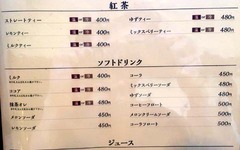 紅茶
ストレートティー 400円
レモンティー 400円
ミルクティー 400円
ゆずティー 480円
ミックスベリーティー 480円
ソフトドリンク
ミルク 400円
ココア 450円
抹茶オレ 450円
メロンソーダ 450円
レモンソーダ 450円
コーラ 450円
ミックスベリーソーダ 480円
ゆずソーダ 480円
コーヒーフロート 500円
メロンクリームソーダ 500円
コーラフロート 500円
ジュース